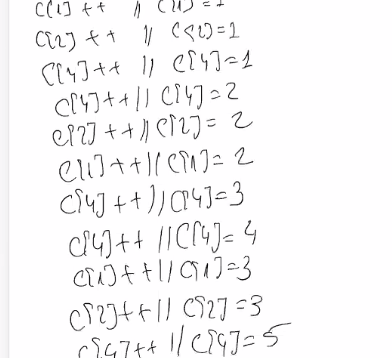 C[1] ++ // C[1] = 1
C[2] ++ // C[2]=1
C[4]++ // C[4]=1
C[4]++// C[4]=2
C[2] ++//C[2]= 2
C[1]++//C[1]= 2
C[4]++//C[4]=3
C[4]++ //C[4]= 4
C[1]++// C[1]=3
C[2]++// C[2]=3
C[4]++ //C[4]=5